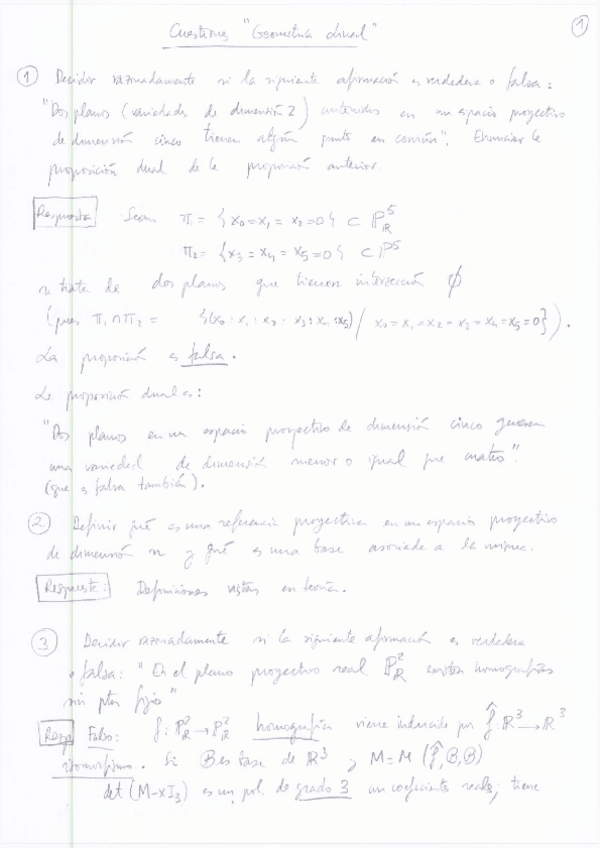 Cuestiones "Geometría Lineal"
1
① Decidir razonadamente si la siguiente afirmación es verdadera o falsa:
"Dos planos (variedades de dimensión 2) contenidos en un espacio proyectivo
de dimensión cinco tienen algún punto en común". Enunciar la
proposición dual de la proposición anterior.
Respuesta Sean π₁ = {x₀=x₁=x₂=0} ⊂ P⁵_R
π₂ = {x₃=x₄=x₅=0} ⊂ P⁵
se trata de dos planos que tienen intersección ∅
(pues π₁∩π₂ = {(x₀:x₁:x₂:x₃:x₄:x₅) / x₀=x₁=x₂=x₃=x₄=x₅=0}).
La proposición es falsa.
La proposición dual es:
"Dos planos en un espacio proyectivo de dimensión cinco generan
una variedad de dimensión menor o igual que cuatro".
(que es falsa también).
② Definir qué es una referencia proyectiva en un espacio proyectivo
de dimensión n y qué es una base asociada a la misma.
Respuesta: Definiciones vistas en teoría.
③ Decidir razonadamente si la siguiente afirmación es verdadera
o falsa: "En el plano proyectivo real P²_R existen homografías
sin ptos fijos"
Resp Falso: f: P²_R → P²_R homografía viene inducida por f̂: R³ → R³
isomorfismo. Si B es base de R³ y M = M(f̂, B, B)
det (M-xI₃) es un pol. de grado 3 con coeficientes reales; tiene